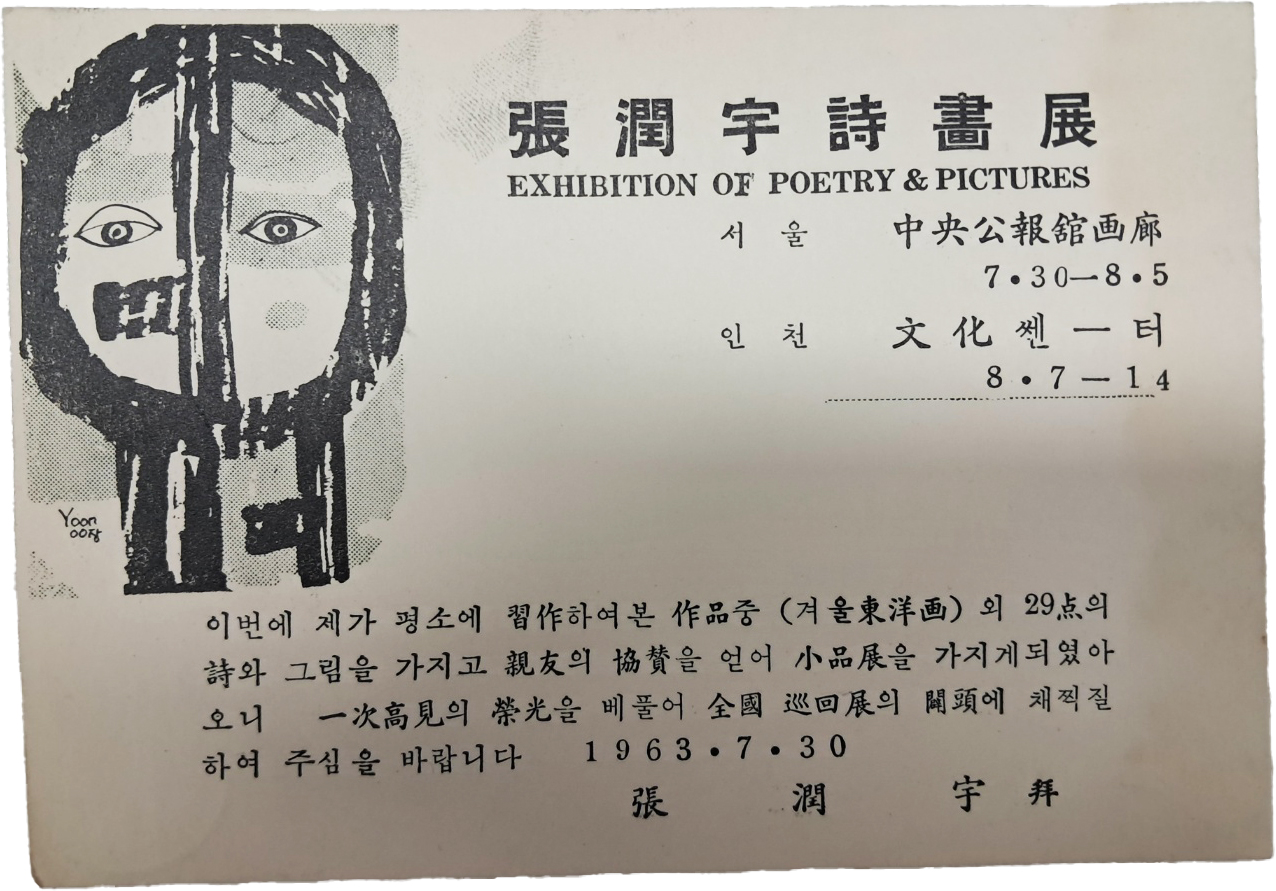 張潤宇詩畵展
EXHIBITION OF POETRY & PICTURES
서울 中央公報舘画廊
7・30—8・5
인천 文化쎈—터
8・7—14
Yoon
이번에 제가 평소에 習作하여본 作品중 (겨울東洋画) 외 29点의
詩와 그림을 가지고 親友의 協賛을 얻어 小品展을 가지게되였아
오니 一次高見의 榮光을 베풀어 全國 巡回展의 闢頭에 채찍질
하여 주심을 바랍니다 1963・7・30
張潤宇 拜